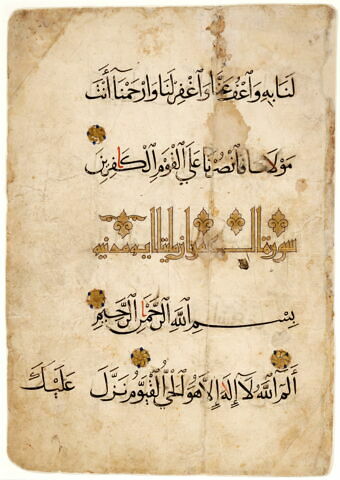 لَنَا بِهِ وَٱعْفُ عَنَّا وَٱغْفِرْ لَنَا وَٱرْحَمْنَا أَنتَ
مَوْلَانَا فَٱنصُرْنَا عَلَى ٱلْقَوْمِ ٱلْكَافِرِينَ
سورة ال عمرن مايتا اية مدنية
بِسْمِ ٱللَّهِ ٱلرَّحْمَٰنِ ٱلرَّحِيمِ
الٓمٓ ٱللَّهُ لَآ إِلَٰهَ إِلَّا هُوَ ٱلْحَيُّ ٱلْقَيُّومُ نَزَّلَ عَلَيْكَ